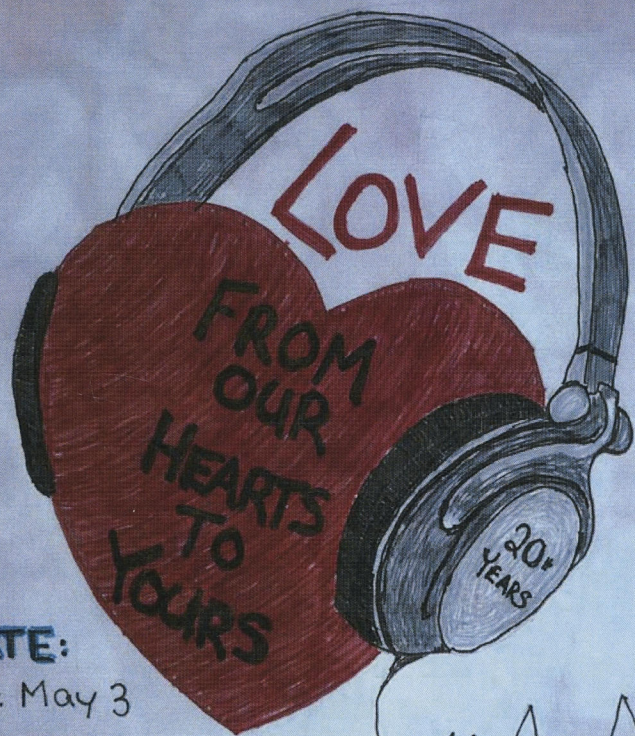 LOVE
FROM
OUR
HEARTS
TO
YOURS
20+
YEARS
ATE:
: May 3